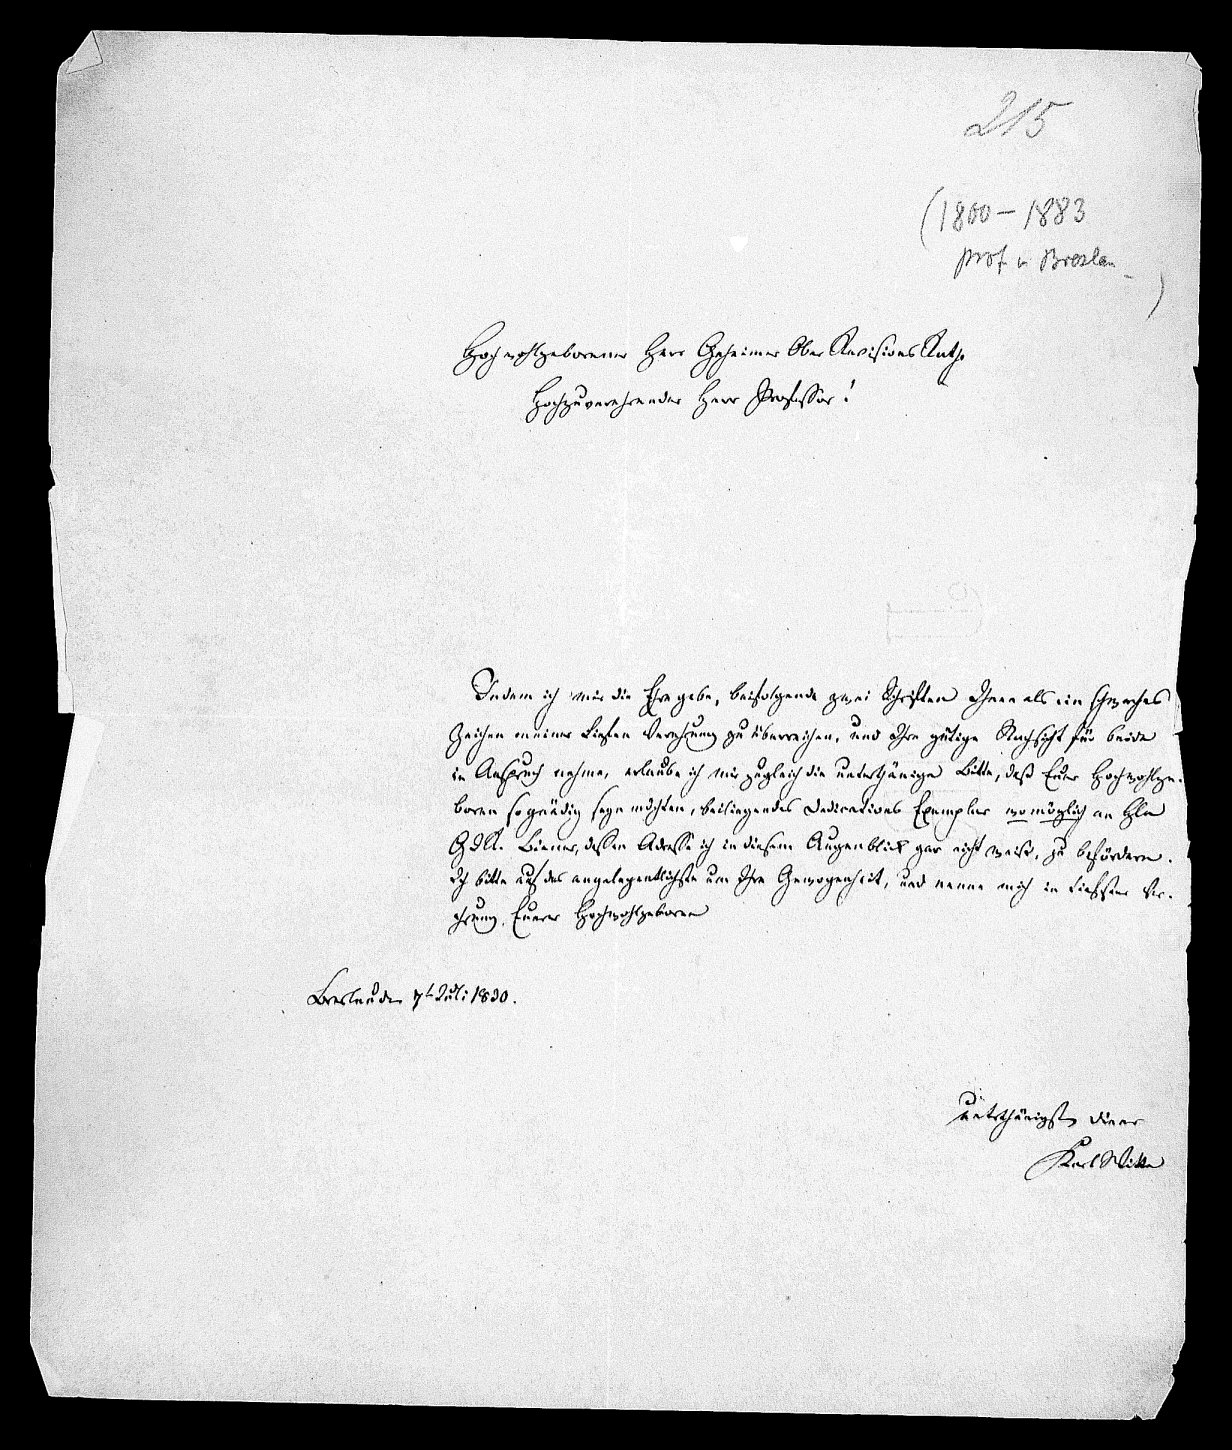 215
(1800-1883
prof in Breslau
)
Hochwohlgeborener Herr Geheimer Ober Revisions Rath,
Hochzuverehrender Herr Professor!
Indem ich mir die Ehre gebe, beifolgende zwei Schriften Ihnen als ein schwaches
Zeichen meiner tiefen Verehrung zu überreichen, und Ihre gütige Nachsicht für beide
in Anspruch nehme, erlaube ich mir zugleich die unterthänige Bitte, daß Euer Hochwohlge-
boren so gnädig seyn möchten, beiliegendes Dedications Exemplar womöglich an Hrn
GdR. Biener, dessen Adresse ich in diesem Augenblick gar nicht weiß, zu befördern.
Ich bitte auf das angelegentlichste um Ihre Gewogenheit, und nenne mich in tiefster Ver-
ehrung Eurer Hochwohlgeboren
Breslau den 7t Juli 1830.
unterthänigster Diener
Karl Witte